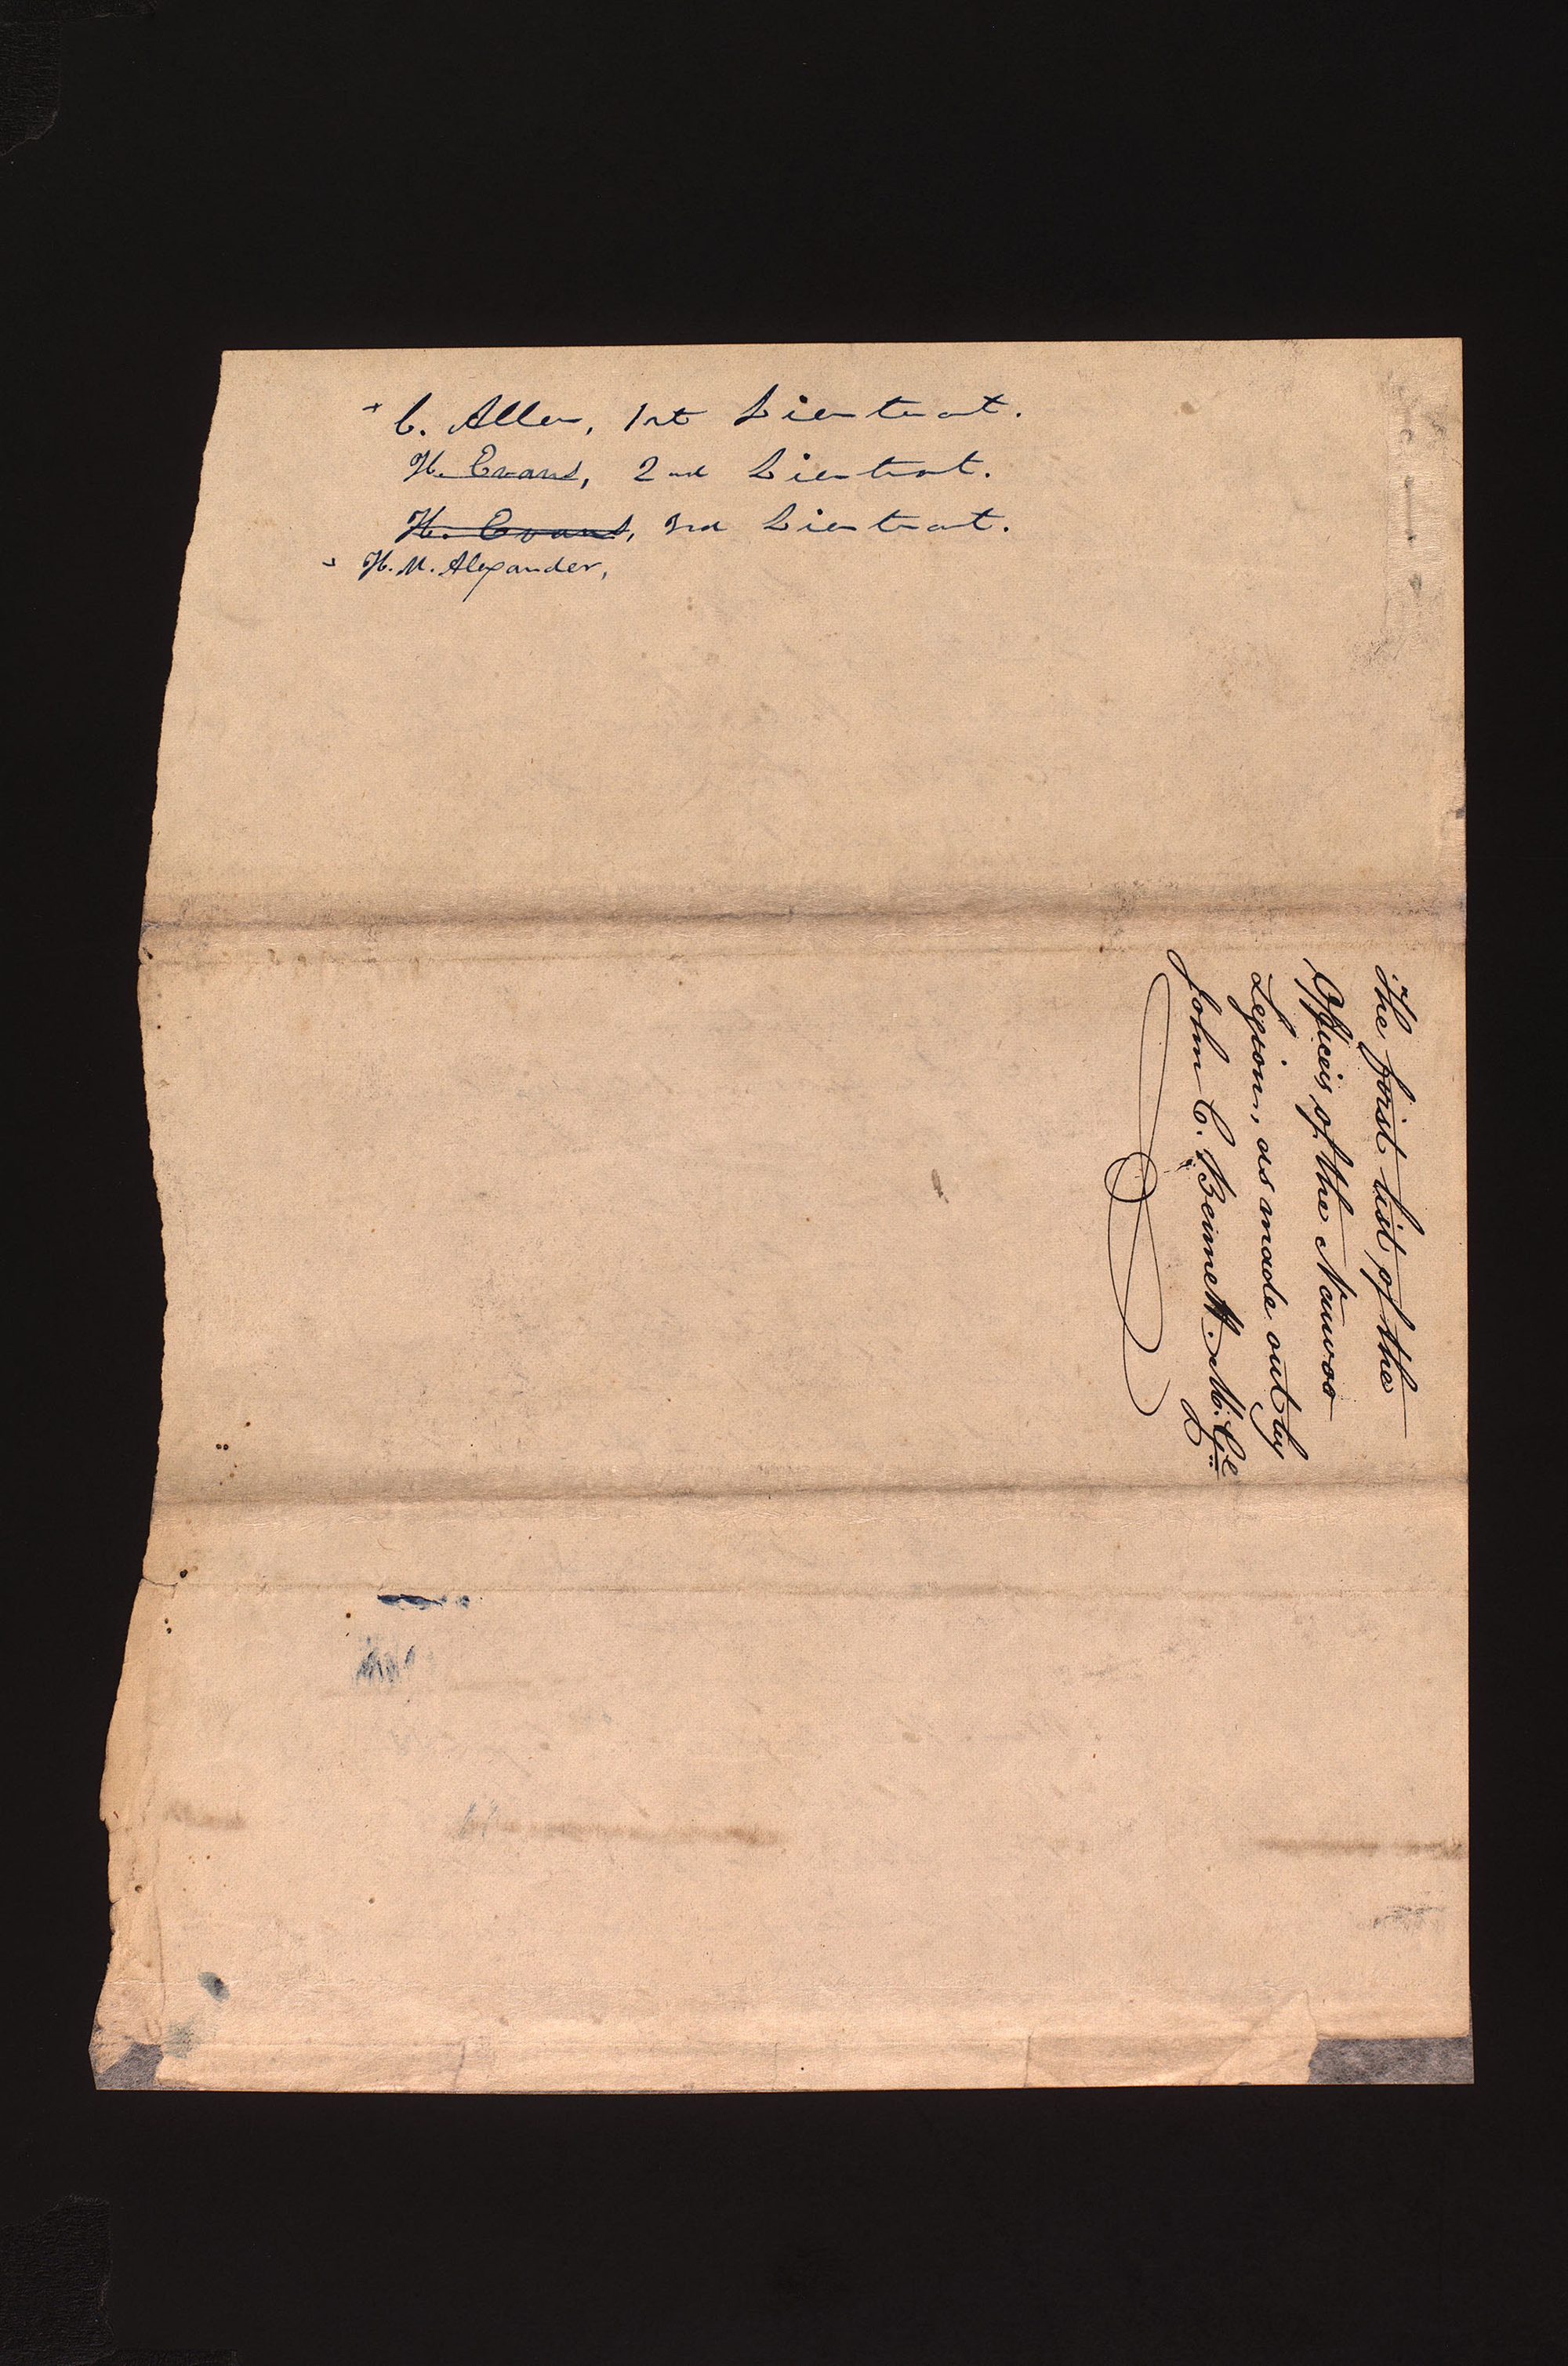 C. Allen, 1st Lieutenant.
H. Evans, 2nd Lieutenant.
H. Evans, 3rd Lieutenant.
H. M. Alexander,
The first list of the
Officers of the Nauvoo
Legion, as made out by
John C. Bennett. M. Gel